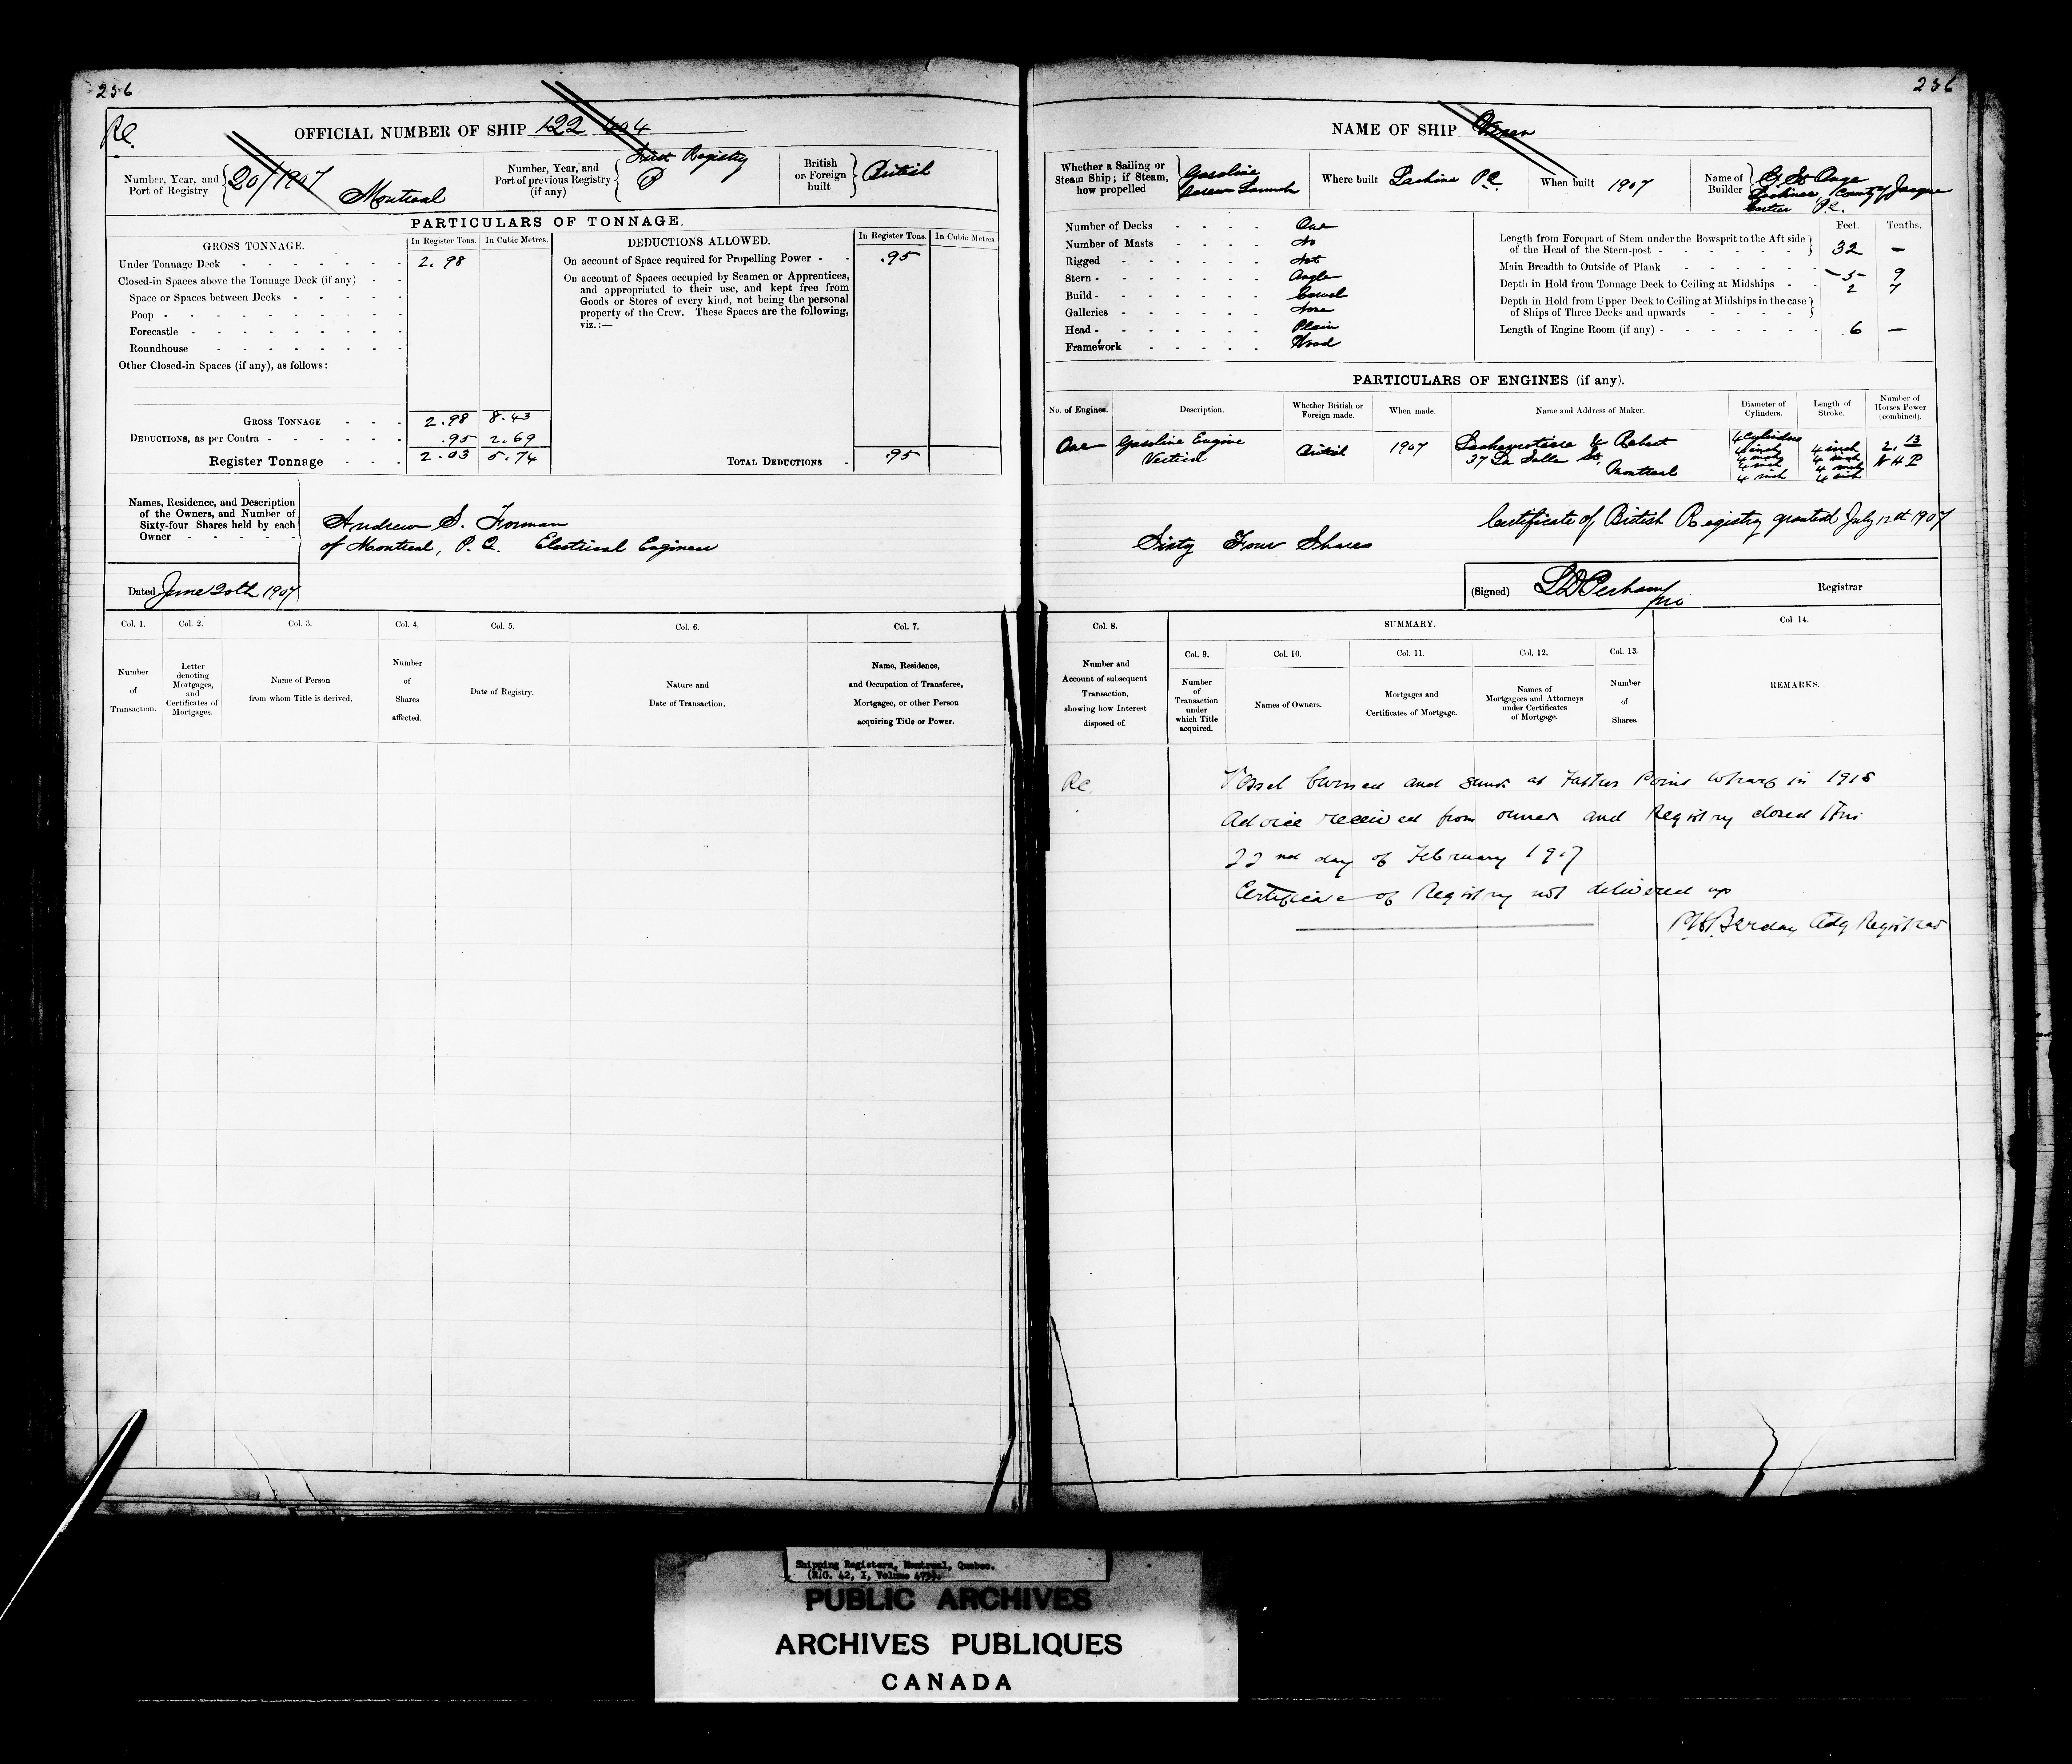 256
256
Rc.
OFFICIAL NUMBER OF SHIP 122 404
Number, Year, and Port of Registry 20/1907 Montreal
Number, Year, and Port of previous Registry (if any) First Registry
British or Foreign built British
PARTICULARS OF TONNAGE.
GROSS TONNAGE.
In Register Tons. In Cubic Metres.
DEDUCTIONS ALLOWED.
In Register Tons. In Cubic Metres.
Under Tonnage Deck 2.98
Closed-in Spaces above the Tonnage Deck (if any)
Space or Spaces between Decks
Poop
Forecastle
Roundhouse
Other Closed-in Spaces (if any), as follows:
GROSS TONNAGE 2.98 8.43
DEDUCTIONS, as per Contra .95 2.69
Register Tonnage 2.03 5.74
On account of Space required for Propelling Power .95
On account of Spaces occupied by Seamen or Apprentices,
and appropriated to their use, and kept free from
Goods or Stores of every kind, not being the personal
property of the Crew. These Spaces are the following,
viz.:—
TOTAL DEDUCTIONS .95
Names, Residence, and Description
of the Owners, and Number of
Sixty-four Shares held by each
Owner
Andrew S. Forman
of Montreal, P. Q. Electrical Engineer
Dated June 20th 1907
Col. 1. Col. 2. Col. 3. Col. 4. Col. 5. Col. 6. Col. 7.
Number of Transaction.
Letter denoting Mortgages, and Certificates of Mortgages.
Name of Person from whom Title is derived.
Number of Shares affected.
Date of Registry.
Nature and Date of Transaction.
Name, Residence, and Occupation of Transferee, Mortgagee, or other Person acquiring Title or Power.
NAME OF SHIP
Whether a Sailing or Steam Ship; if Steam, how propelled Gasoline Screw Launch
Where built Lachine P.Q.
When built 1907
Name of Builder St Onge
Lachine, County of Jacques
Cartier P.Q.
Number of Decks One
Number of Masts No
Rigged Not
Stern Angle
Build Carvel
Galleries None
Head Plain
Framework Wood
Feet. Tenths.
Length from Forepart of Stem under the Bowsprit to the Aft side of the Head of the Stern-post 32 —
Main Breadth to Outside of Plank 5 9
Depth in Hold from Tonnage Deck to Ceiling at Midships 2 7
Depth in Hold from Upper Deck to Ceiling at Midships in the case of Ships of Three Decks and upwards
Length of Engine Room (if any) 6 —
PARTICULARS OF ENGINES (if any).
No. of Engines. Description. Whether British or Foreign made. When made. Name and Address of Maker. Diameter of Cylinders. Length of Stroke. Number of Horses Power (combined).
One Gasoline Engine Vertical British 1907
37 La Salle St, Montreal
4 Cylinders
4 inch 4 inch
4 inch 4 inch
4 inch 4 inch
4 inch 4 inch
2.13 N H P
Sixty Four Shares
Certificate of British Registry granted July 12th 1907
(Signed) Registrar
Col. 8. SUMMARY. Col 14.
Col. 9. Col. 10. Col. 11. Col. 12. Col. 13.
Number and Account of subsequent Transaction, showing how Interest disposed of.
Number of Transaction under which Title acquired.
Names of Owners.
Mortgages and Certificates of Mortgage.
Names of Mortgagees and Attorneys under Certificates of Mortgage.
Number of Shares.
REMARKS.
Rc. Vessel burned and sunk at Father Point wharf in 1915
Advice received from owner and Registry closed this
22nd day of February 1917
Certificate of Registry not delivered up
Actg Registrar
Shipping Registers, Montreal, Quebec.
(R.G. 42, I, Volume
PUBLIC ARCHIVES
ARCHIVES PUBLIQUES
CANADA